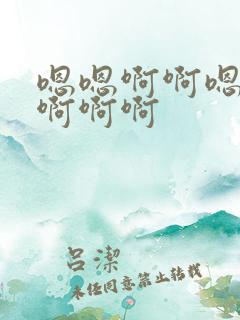 嗯嗯啊啊嗯
啊啊啊
吕潔
未经同意禁止转载